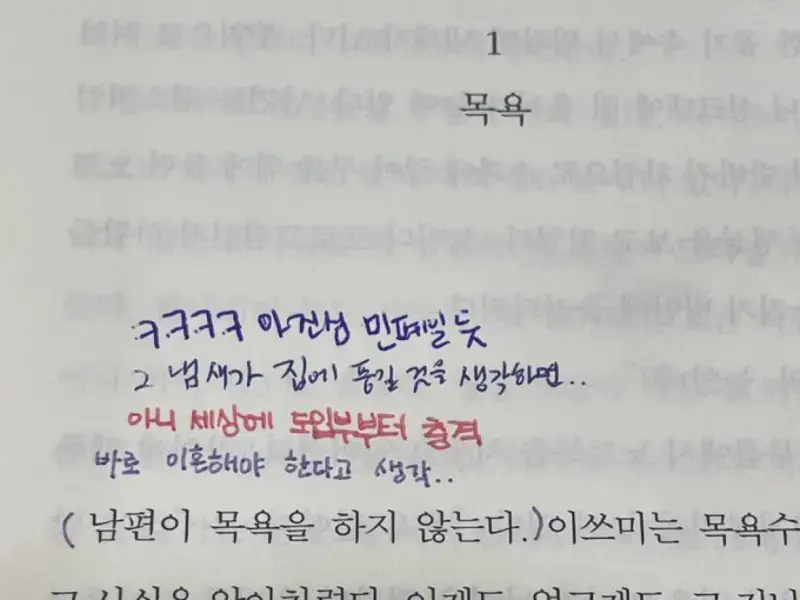 1
목욕
ㅋㅋㅋㅋ 아 진성 민폐빌 듯
그 냄새가 집에 풍길 것을 생각하면..
아니 세상에 도입부부터 충격
바로 이혼해야 한다고 생각..
(남편이 목욕을 하지 않는다.)이쓰미는 목욕수